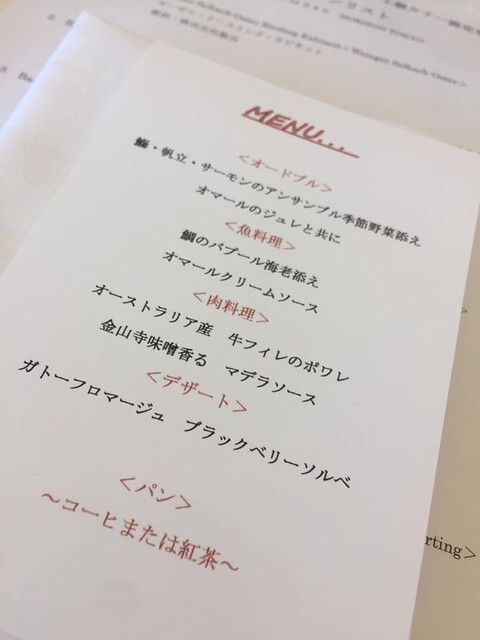 リスト
MENU...
＜オードブル＞
鰤・帆立・サーモンのアンサンブル季節野菜添え
オマールのジュレと共に
＜魚料理＞
鯛のパプール海老添え
オマールクリームソース
＜肉料理＞
オーストラリア産　牛フィレのポワレ
金山寺味噌香る　マデラソース
＜デザート＞
ガトーフロマージュ　ブラックベリーソルベ
＜パン＞
～コーヒまたは紅茶～
rting＞